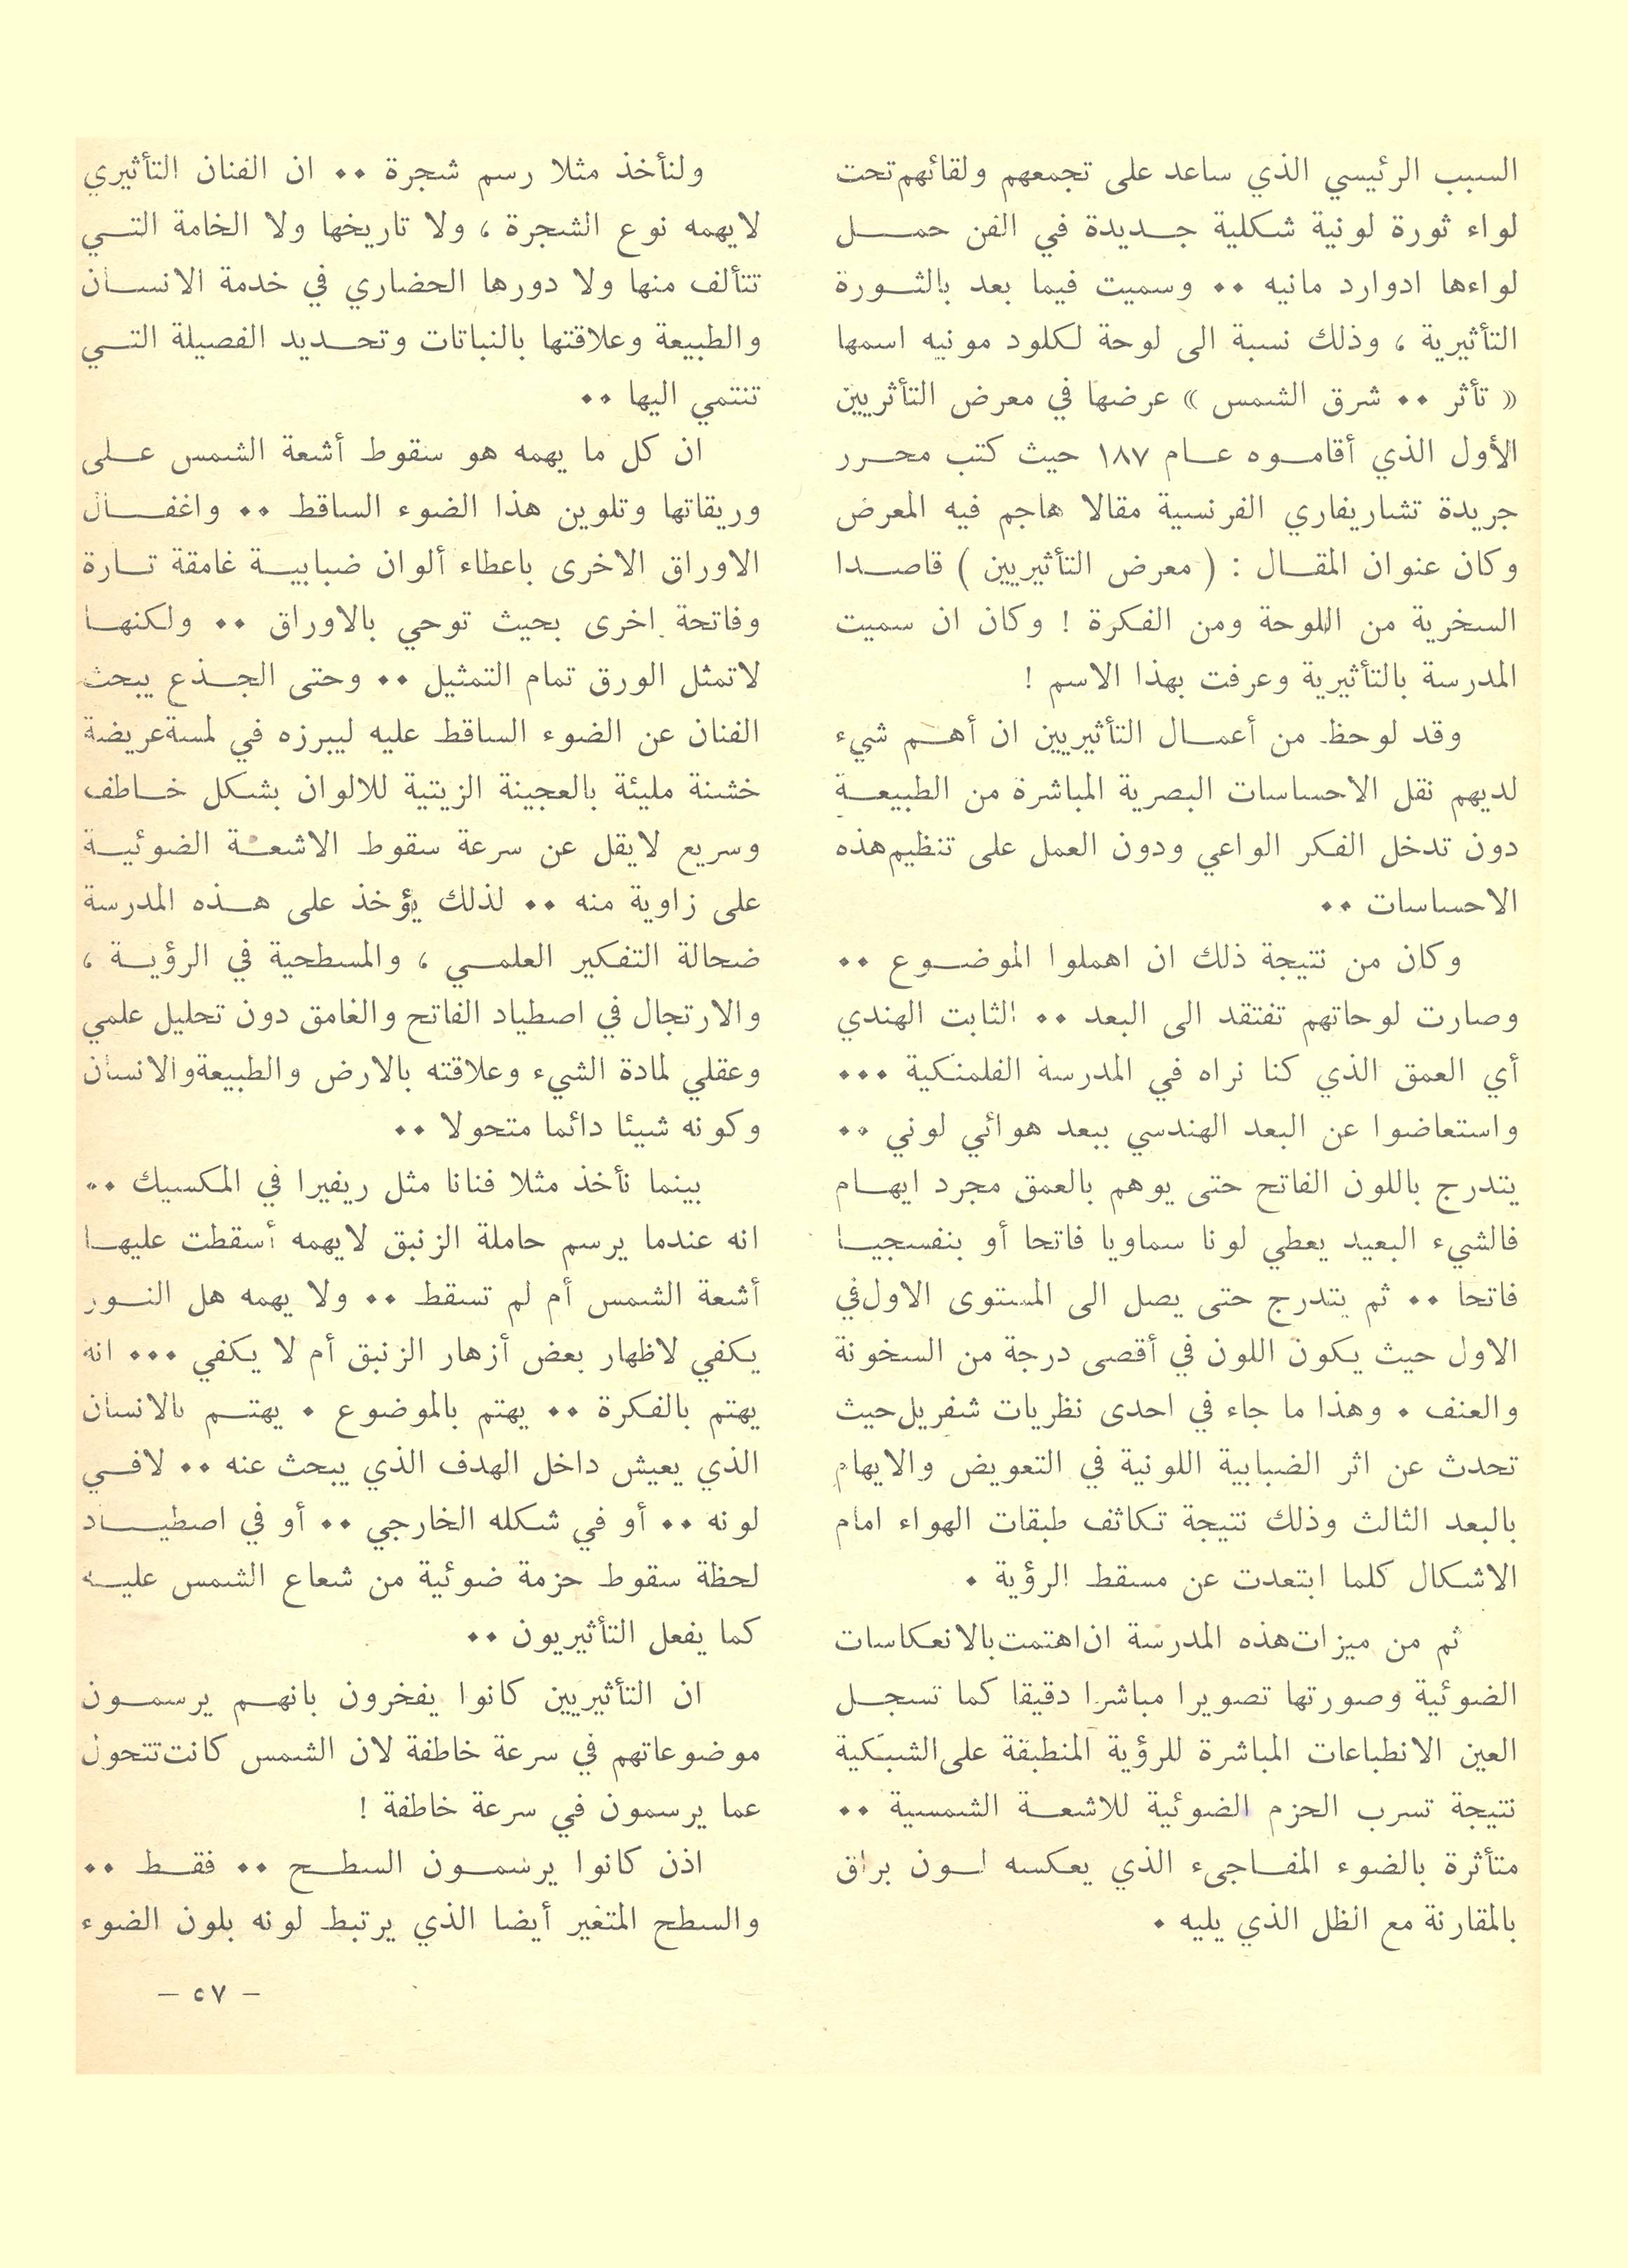 السبب الرئيسي الذي ساعد على تجمعهم ولقائهم تحت
لواء ثورة لونية شكلية جديدة في الفن حمل
لواءها ادوارد مانيه .. وسميت فيما بعد بالثورة
التأثيرية ، وذلك نسبة الى لوحة لكلود مونيه اسمها
« تأثر .. شرق الشمس » عرضها في معرض التأثريين
الأول الذي أقاموه عام ١٨٧ حيث كتب محرر
جريدة تشاريفاري الفرنسية مقالا هاجم فيه المعرض
وكان عنوان المقال : ( معرض التأثيريين ) قاصدا
السخرية من اللوحة ومن الفكرة ! وكان ان سميت
المدرسة بالتأثيرية وعرفت بهذا الاسم !
وقد لوحظ من أعمال التأثيريين ان أهم شيء
لديهم نقل الاحساسات البصرية المباشرة من الطبيعة
دون تدخل الفكر الواعي ودون العمل على تنظيم هذه
الاحساسات ..
وكان من نتيجة ذلك ان اهملوا الموضوع ..
وصارت لوحاتهم تفتقد الى البعد .. الثابت الهندي
أي العمق الذي كنا نراه في المدرسة الفلمنكية ...
واستعاضوا عن البعد الهندسي ببعد هوائي لوني ..
يتدرج باللون الفاتح حتى يوهم بالعمق مجرد ايهام
فالشيء البعيد يعطي لونا سماويا فاتحا أو بنفسجيا
فاتحا .. ثم يتدرج حتى يصل الى المستوى الاول في
الاول حيث يكون اللون في أقصى درجة من السخونة
والعنف . وهذا ما جاء في احدى نظريات شفريل حيث
تحدث عن اثر الضبابية اللونية في التعويض والايهام
بالبعد الثالث وذلك نتيجة تكاثف طبقات الهواء امام
الاشكال كلما ابتعدت عن مسقط الرؤية .
ثم من ميزات هذه المدرسة ان اهتمت بالانعكاسات
الضوئية وصورتها تصويرا مباشرا دقيقا كما تسجل
العين الانطباعات المباشرة للرؤية المنطبقة على الشبكية
نتيجة تسرب الحزم الضوئية للاشعة الشمسية ..
متأثرة بالضوء المفاجىء الذي يعكسه لون براق
بالمقارنة مع الظل الذي يليه .
ولنأخذ مثلا رسم شجرة .. ان الفنان التأثيري
لايهمه نوع الشجرة ، ولا تاريخها ولا الخامة التي
تتألف منها ولا دورها الحضاري في خدمة الانسان
والطبيعة وعلاقتها بالنباتات وتحديد الفصيلة التي
تنتمي اليها ..
ان كل ما يهمه هو سقوط أشعة الشمس على
وريقاتها وتلوين هذا الضوء الساقط .. واغفال
الاوراق الاخرى باعطاء ألوان ضبابية غامقة تارة
وفاتحة اخرى بحيث توحي بالاوراق .. ولكنها
لاتمثل الورق تمام التمثيل .. وحتى الجذع يبحث
الفنان عن الضوء الساقط عليه ليبرزه في لمسة عريضة
خشنة مليئة بالعجينة الزيتية للالوان بشكل خاطف
وسريع لايقل عن سرعة سقوط الاشعة الضوئية
على زاوية منه .. لذلك يؤخذ على هذه المدرسة
ضحالة التفكير العلمي ، والمسطحية في الرؤية ،
والارتجال في اصطياد الفاتح والغامق دون تحليل علمي
وعقلي لمادة الشيء وعلاقته بالارض والطبيعة والانسان
وكونه شيئا دائما متحولا ..
بينما نأخذ مثلا فنانا مثل ريفيرا في المكسيك ..
انه عندما يرسم حاملة الزنبق لايهمه أسقطت عليها
أشعة الشمس أم لم تسقط .. ولا يهمه هل النور
يكفي لاظهار بعض أزهار الزنبق أم لا يكفي ... انه
يهتم بالفكرة .. يهتم بالموضوع . يهتم بالانسان
الذي يعيش داخل الهدف الذي يبحث عنه .. لافي
لونه .. أو في شكله الخارجي .. أو في اصطياد
لحظة سقوط حزمة ضوئية من شعاع الشمس عليه
كما يفعل التأثيريون ..
ان التأثيريين كانوا يفخرون بانهم يرسمون
موضوعاتهم في سرعة خاطفة لان الشمس كانت تتحول
عما يرسمون في سرعة خاطفة !
اذن كانوا يرسمون السطح .. فقط ..
والسطح المتغير أيضا الذي يرتبط لونه بلون الضوء
– ٥٧ –